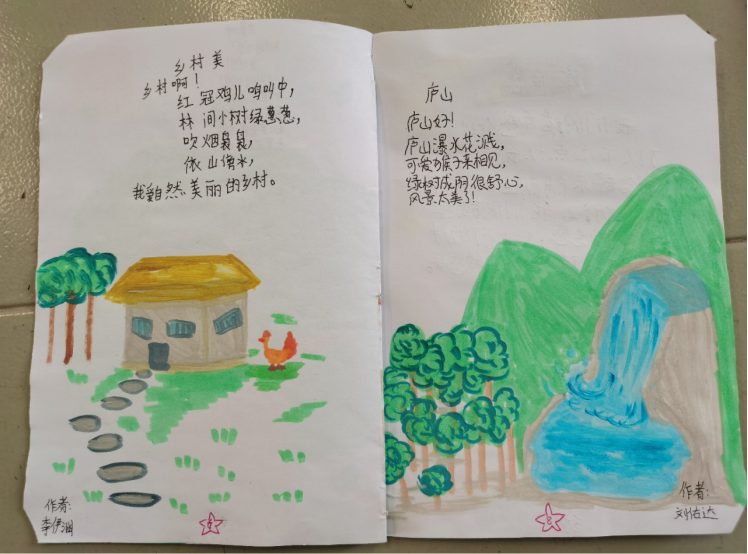 乡村美
乡村啊！
红冠鸡儿鸣叫中，
林间小树绿葱葱，
吹烟袅袅，
依山傍水，
我自然美丽的乡村。
作者：
李伊润
庐山
庐山好！
庐山瀑水花溅，
可爱猴子来相见，
绿树成阴很舒心，
风景太美了！
作者：
刘佑达